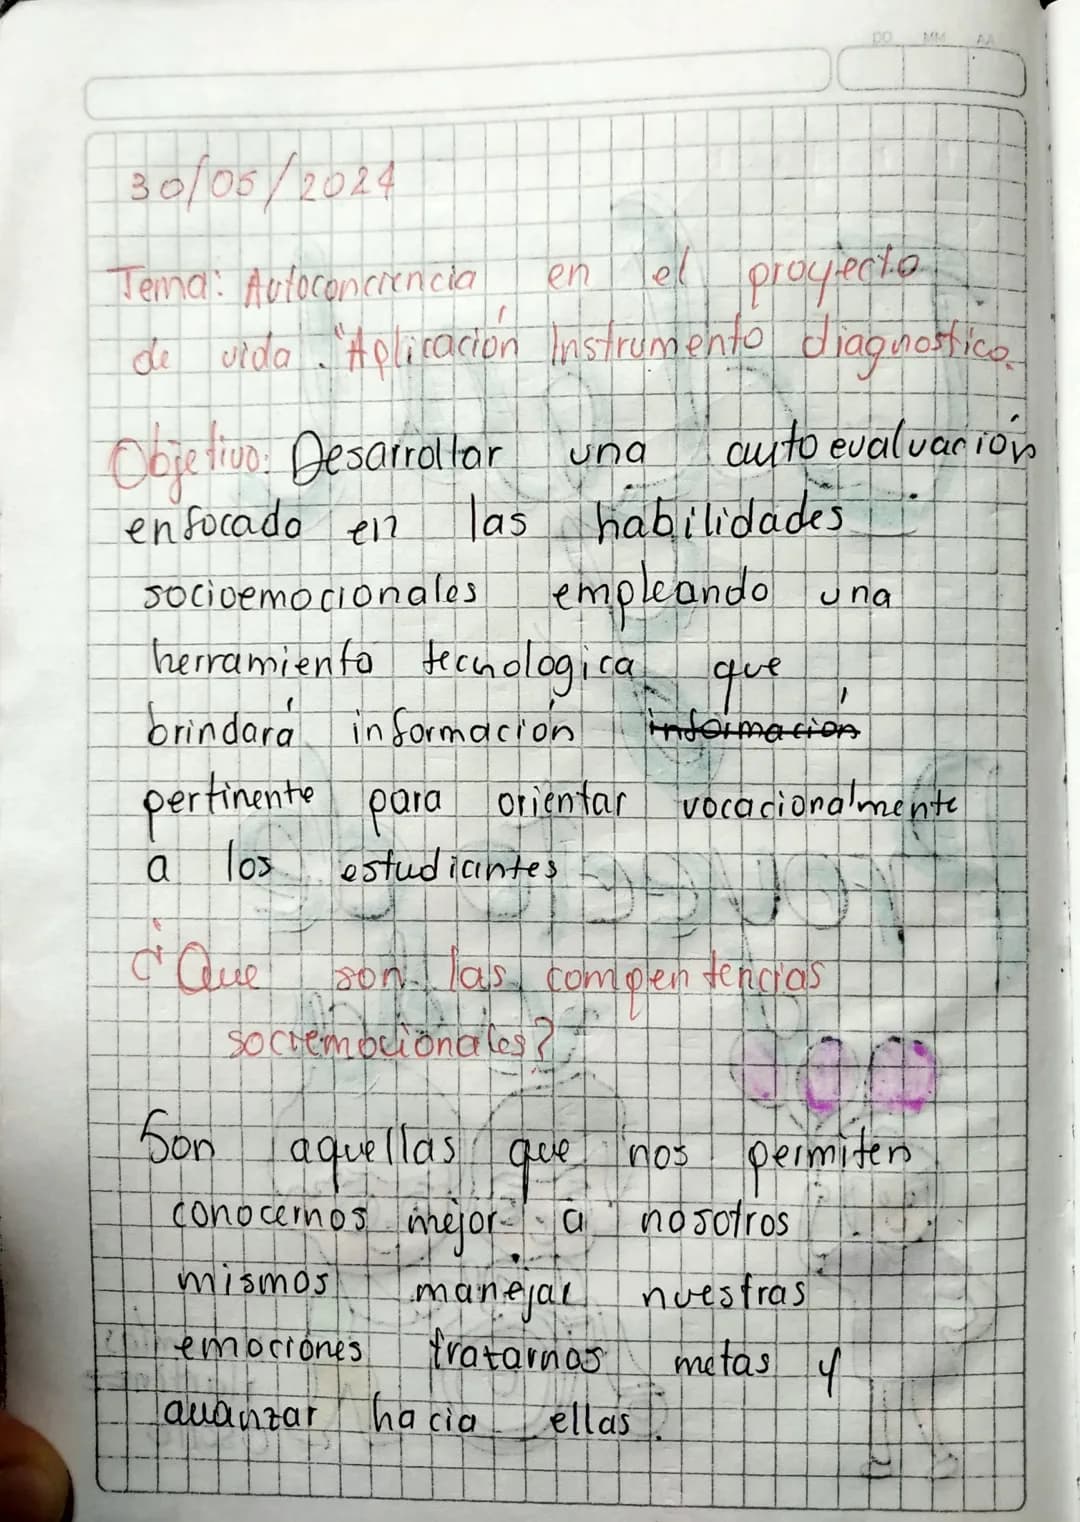 DD MM AA
30/05/2024
Tema: Autoconciencia en el proyecto
de vida. "Aplicación Instrumento diagnostico.
Objetivo: Desarrollar una autoevaluación
enfocado en las habilidades
socioemocionales empleando una
herramiento tecnologica que
brindará información información
pertinente para orientar vocacionalmente
a los estudiantes
¿Que son las compentencias
sociemocionales?
Son aquellas que nos permiten
conocernos mejor a nosotros
mismos manejar nuestras
emociones tratarnos metas y
avanzar hacia ellas.